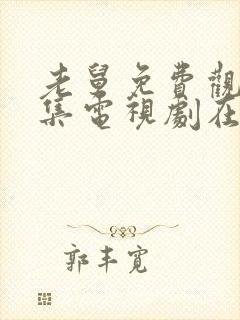 老舅免費觀
集電視劇在
郭丰寬